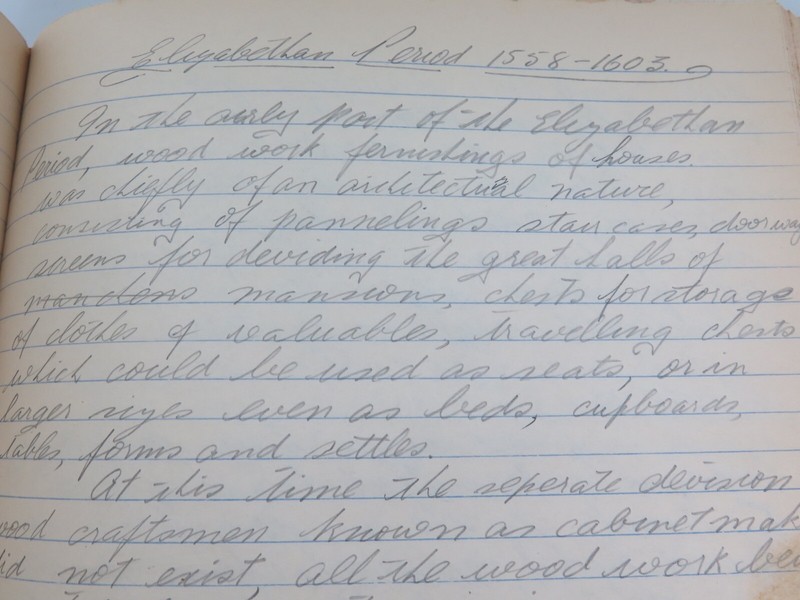 Elizabethan Period 1558-1603.
In the early part of the Elizabethan
Period, wood work fernishings of houses.
was chiefly of an architectural nature,
consisting of pannelings stair cases, doorway
screens for deviding the great halls of
mansions, chests for storage
of clothes & valuables, travelling chests
which could be used as seats, or in
larger sizes even as beds, cupboards,
tables, forms and settles.
At this time the seperate devision
wood craftsmen known as cabinet mak
did not exist, all the wood work bei